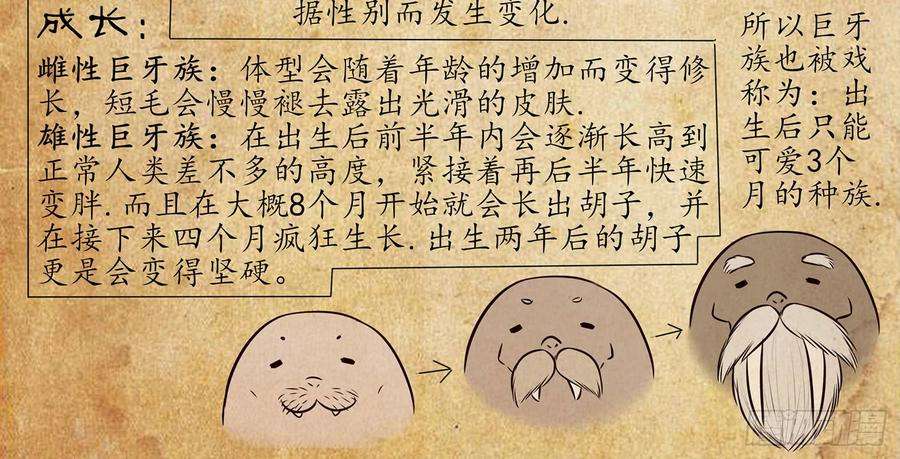 据性别而发生变化.
成长：
雌性巨牙族：体型会随着年龄的增加而变得修
长，短毛会慢慢褪去露出光滑的皮肤.
雄性巨牙族：在出生后前半年内会逐渐长高到
正常人类差不多的高度，紧接着再后半年快速
变胖.而且在大概8个月开始就会长出胡子，并
在接下来四个月疯狂生长.出生两年后的胡子
更是会变得坚硬。
所以巨牙
族也被戏
称为：出
生后只能
可爱3个
月的种族.